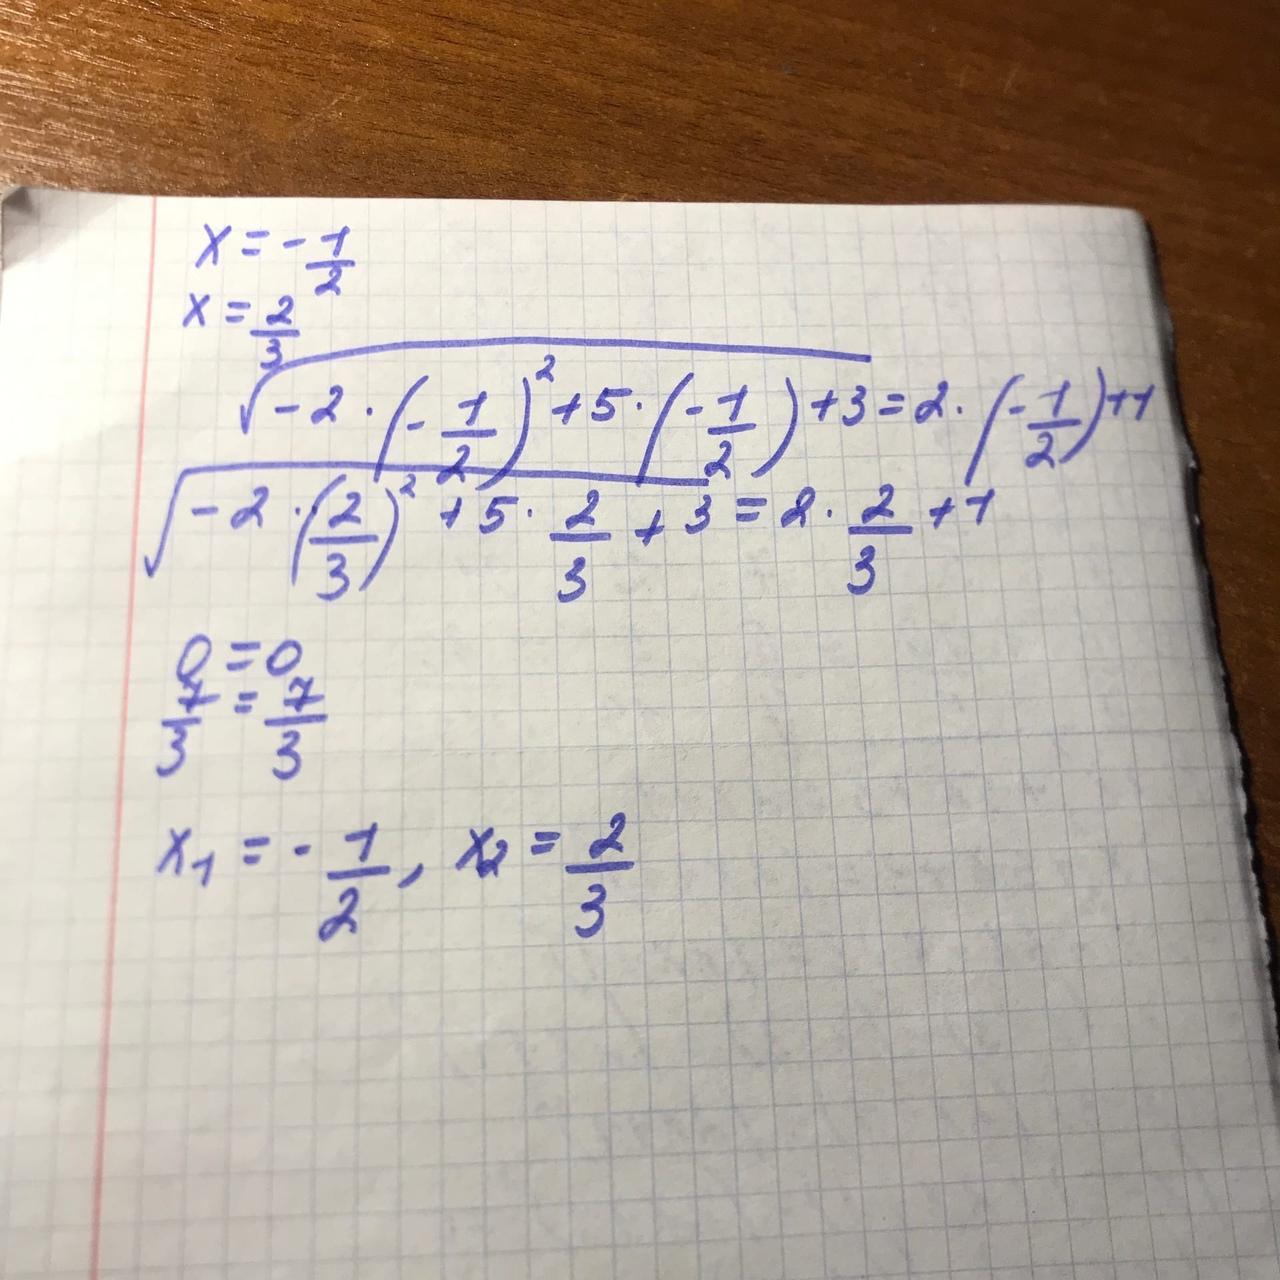 x = -1/2
x = 2/3
√(-2·(-1/2)²+5·(-1/2)+3) = 2·(-1/2)+1
√(-2·(2/3)²+5·2/3+3) = 2·2/3+1
0 = 0
7/3 = 7/3
x₁ = -1/2, x₂ = 2/3